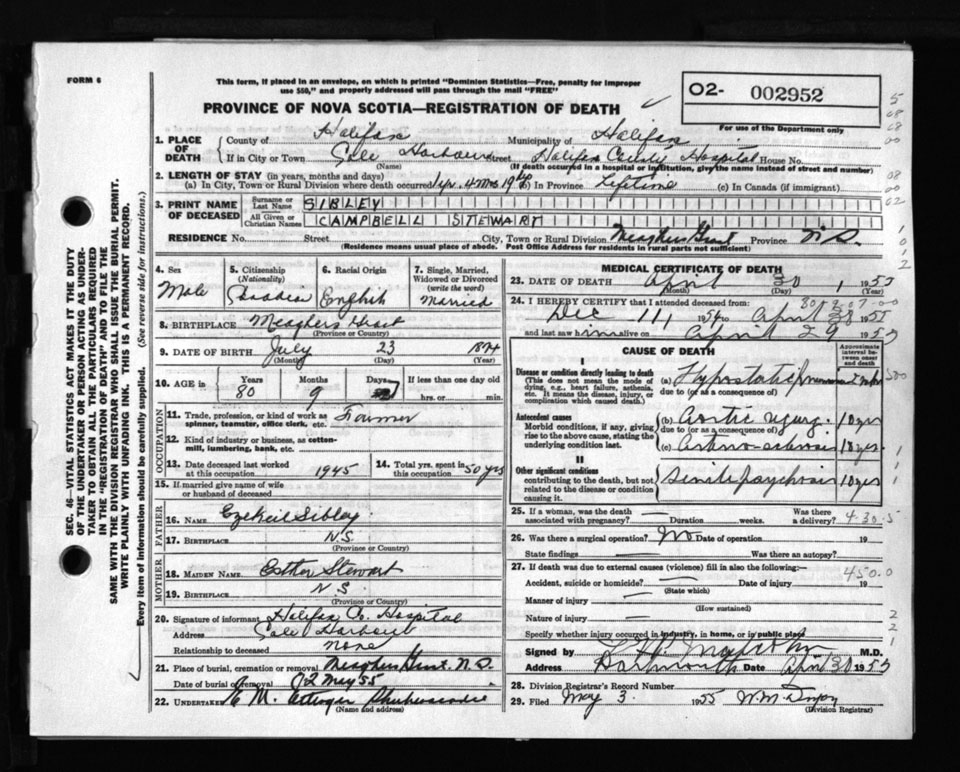 FORM 6
This form, if placed in an envelope, on which is printed "Dominion Statistics—Free, penalty for improper
use $50," and properly addressed will pass through the mail "FREE"
PROVINCE OF NOVA SCOTIA—REGISTRATION OF DEATH
O2- 002952
For use of the Department only
SEC. 46—VITAL STATISTICS ACT MAKES IT THE DUTY
OF THE UNDERTAKER OR PERSON ACTING AS UNDER-
TAKER TO OBTAIN ALL THE PARTICULARS REQUIRED
IN THE "REGISTRATION OF DEATH" AND TO FILE THE
SAME WITH THE DIVISION REGISTRAR WHO SHALL ISSUE THE BURIAL PERMIT.
WRITE PLAINLY WITH UNFADING INK. THIS IS A PERMANENT RECORD.
Every item of information should be carefully supplied. (See reverse side for instructions.)
1. PLACE OF DEATH
County of Halifax Municipality of Halifax
If in City or Town Cole Harbour Street Halifax County Hospital House No.
(Name) (If death occurred in a hospital or institution, give the name instead of street and number)
2. LENGTH OF STAY (in years, months and days)
(a) In City, Town or Rural Division where death occurred 1 yr. 4 mos 19 (b) In Province Lifetime (c) In Canada (if immigrant)
3. PRINT NAME OF DECEASED
Surname or Last Name SIBLEY
All Given or Christian Names CAMPBELL STEWART
RESIDENCE No. Street City, Town or Rural Division Meaghers Grant Province N.S.
(Residence means usual place of abode. Post Office Address for residents in rural parts not sufficient)
4. Sex Male
5. Citizenship (Nationality)
6. Racial Origin English
7. Single, Married, Widowed or Divorced (write the word) Married
8. BIRTHPLACE Meaghers Grant
(Province or Country)
9. DATE OF BIRTH July 23 1874
(Month) (Day) (Year)
10. AGE in Years 80 Months 9 Days 7 If less than one day old
hrs. or min.
OCCUPATION
11. Trade, profession, or kind of work as spinner, teamster, office clerk, etc. Farmer
12. Kind of industry or business, as cotton-mill, lumbering, bank, etc.
13. Date deceased last worked at this occupation 1945
14. Total yrs. spent in this occupation 50 yrs
15. If married give name of wife or husband of deceased
FATHER
16. NAME Ezekiel Sibley
17. BIRTHPLACE N.S.
(Province or Country)
MOTHER
18. MAIDEN NAME Esther Stewart
19. BIRTHPLACE N.S.
(Province or Country)
20. Signature of informant Halifax Co. Hospital
Address Cole Harbour
Relationship to deceased none
21. Place of burial, cremation or removal Meaghers Grant. N.S.
Date of burial or removal 2 May 55
22. UNDERTAKER Shubenacadie
(Name and address)
MEDICAL CERTIFICATE OF DEATH
23. DATE OF DEATH April 30 1955
(Month) (Day) (Year)
24. I HEREBY CERTIFY that I attended deceased from:
Dec 11, 1954 to April 1955
and last saw him alive on April 29 1955
CAUSE OF DEATH
Approximate interval between onset and death
I
Disease or condition directly leading to death
(This does not mean the mode of dying, e.g., heart failure, asthenia, etc. It means the disease, injury, or complication which caused death.)
(a) Hypostatic pneumonia
due to (or as a consequence of)
Antecedent causes
Morbid conditions, if any, giving rise to the above cause, stating the underlying condition last.
(b) Aortic regurg. 10 yrs
due to (or as a consequence of)
(c) Arterio-sclerosis 10 yrs.
II
Other significant conditions
contributing to the death, but not related to the disease or condition causing it.
Senile psychosis 10 yrs
25. If a woman, was the death associated with pregnancy? — Duration weeks. Was there a delivery?
430.5
26. Was there a surgical operation? No Date of operation 19
State findings — Was there an autopsy?
27. If death was due to external causes (violence) fill in also the following:—
450.0
Accident, suicide or homicide? — Date of injury 19
(State which)
Manner of injury —
(How sustained)
Nature of injury —
Specify whether injury occurred in industry, in home, or in public place
Signed by M.D.
Address Dartmouth Date April 30 1955
28. Division Registrar's Record Number
29. Filed May 3 1955
(Division Registrar)